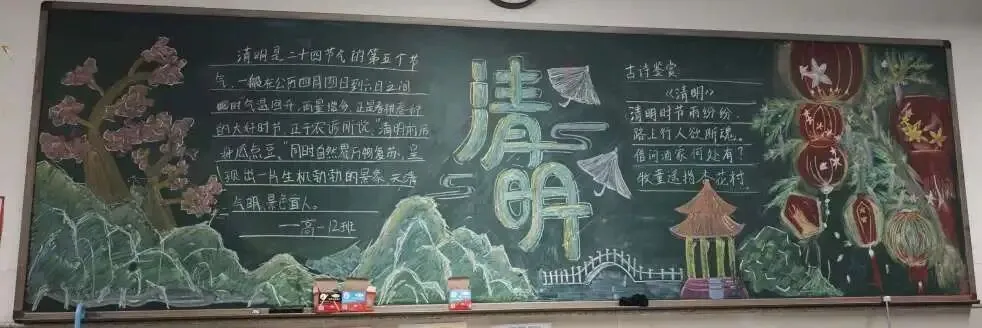 清明是二十四节气的第五个节
气,一般在公历四月四日到六日之间
此时气温回升,雨量增多,正是春耕春种
的大好时节,正于农谚所说,"清明前后
种瓜点豆,"同时自然界万物复苏,呈
现出一片生机勃勃的景象天清
气明,景色宜人。
——高一12班
清明
古诗鉴赏
《清明》
清明时节雨纷纷,
路上行人欲断魂。
借问酒家何处有?
牧童遥指杏花村。